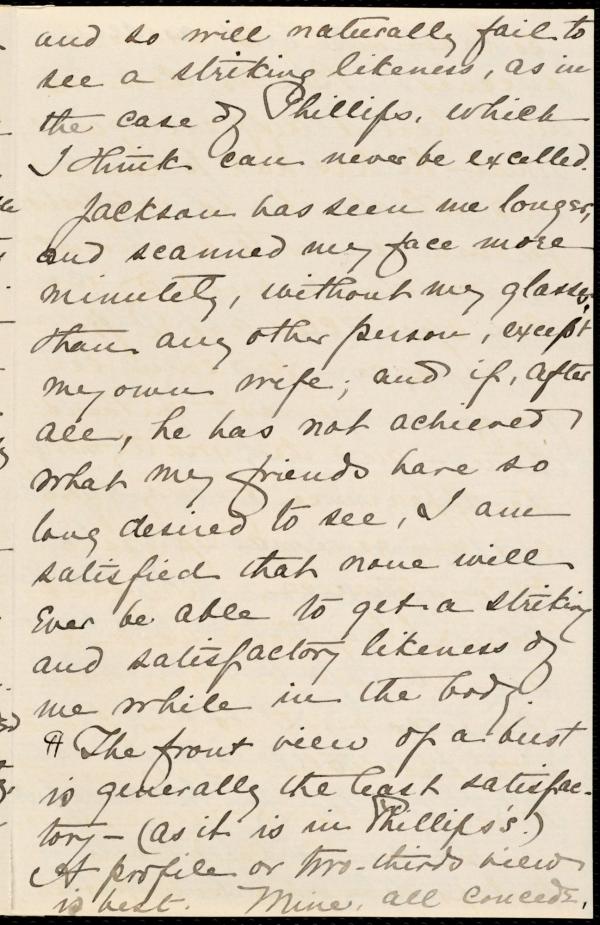 and so will naturally fail to
see a striking likeness, as in
the case of Phillips, which
I think can never be excelled.
Jackson has seen me longer,
and scanned my face more
minutely, without my glasses,
than any other person, except
my own wife; and if, after
all, he has not achieved
what my friends have so
long desired to see, I am
satisfied that none will
Ever be able to get a striking
and satisfactory likeness of
me while in the body.
¶ The front view of a bust
is generally the least satisfac-
tory — (as it is in Phillips's.)
A profile or two-thirds view
is best. Mine, all concede,